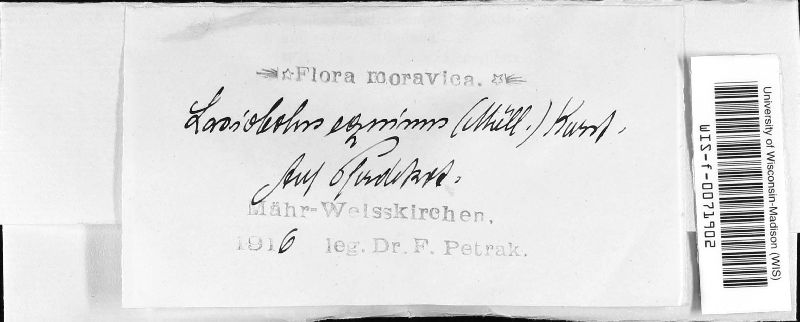 Flora moravica.
Lasiobolus equinus (Müll.) Karst.
Auf Pferdekot.
Mähr-Weisskirchen,
1916 leg. Dr. F. Petrak.
University of Wisconsin-Madison (WIS)
WIS-f-0071902